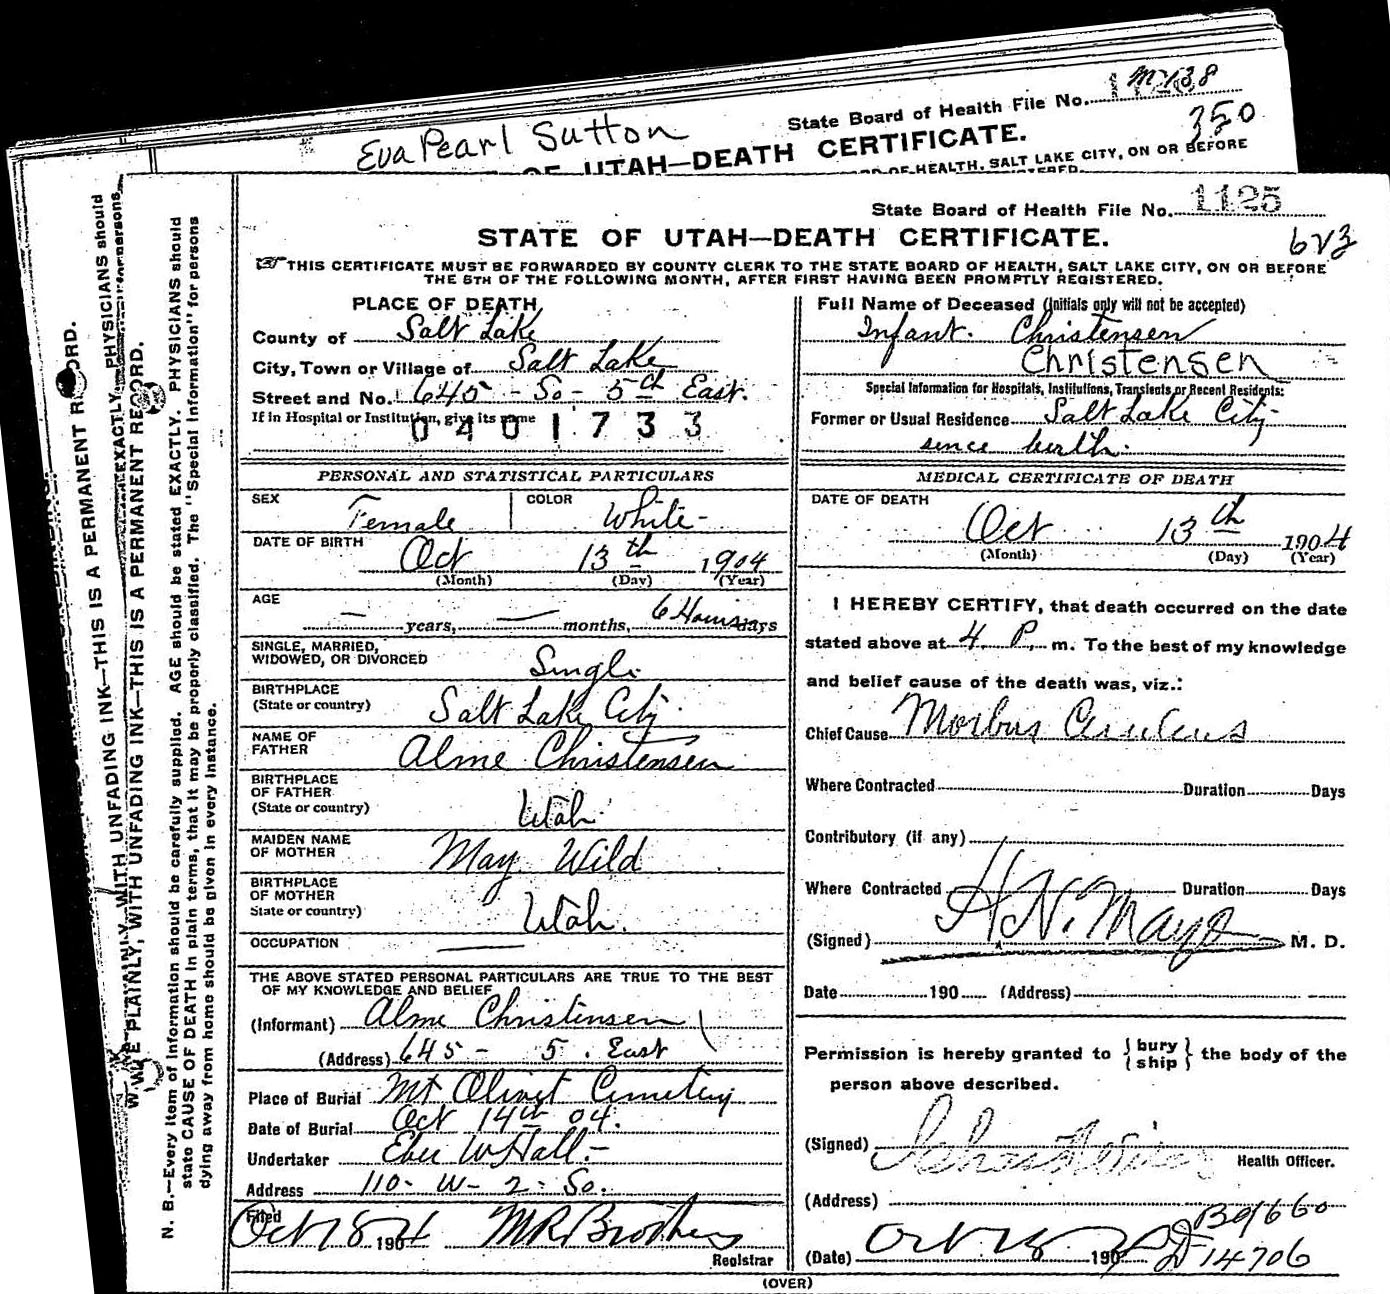 Eva Pearl Sutton
State Board of Health File No.
350
OF UTAH—DEATH CERTIFICATE.
RD OF HEALTH, SALT LAKE CITY, ON OR BEFORE
State Board of Health File No. 1125
STATE OF UTAH—DEATH CERTIFICATE.
THIS CERTIFICATE MUST BE FORWARDED BY COUNTY CLERK TO THE STATE BOARD OF HEALTH, SALT LAKE CITY, ON OR BEFORE
THE 5TH OF THE FOLLOWING MONTH, AFTER FIRST HAVING BEEN PROMPTLY REGISTERED.
PLACE OF DEATH
County of Salt Lake
City, Town or Village of Salt Lake
Street and No. 645 - So - 5th East.
If in Hospital or Institution, give its name
0401733
Full Name of Deceased (Initials only will not be accepted)
Infant. Christensen
Christensen
Special Information for Hospitals, Institutions, Transients or Recent Residents:
Former or Usual Residence Salt Lake City
since birth.
PERSONAL AND STATISTICAL PARTICULARS
SEX Female COLOR White -
DATE OF BIRTH
Oct 13th 1904
(Month) (Day) (Year)
AGE
— years, — months, 6 Hours days
SINGLE, MARRIED,
WIDOWED, OR DIVORCED Single
BIRTHPLACE
(State or country) Salt Lake City
NAME OF
FATHER Alme Christensen
BIRTHPLACE
OF FATHER
(State or country) Utah.
MAIDEN NAME
OF MOTHER May Wild
BIRTHPLACE
OF MOTHER
State or country) Utah.
OCCUPATION —
THE ABOVE STATED PERSONAL PARTICULARS ARE TRUE TO THE BEST
OF MY KNOWLEDGE AND BELIEF
(Informant) Alme Christensen
(Address) 645 - 5. East
Place of Burial Mt Olivet Cemetery
Date of Burial Oct 14th 04.
Undertaker Eber W Hall. -
Address 110 - W - 2 - So.
Filed Oct 18 1904 M R Brothers
Registrar
MEDICAL CERTIFICATE OF DEATH
DATE OF DEATH
Oct 13th 1904
(Month) (Day) (Year)
I HEREBY CERTIFY, that death occurred on the date
stated above at 4 P. m. To the best of my knowledge
and belief cause of the death was, viz.:
Chief Cause Morbus Ceruleus
Where Contracted Duration Days
Contributory (if any)
Where Contracted Duration Days
(Signed) H. N. Mayo M. D.
Date 190 (Address)
Permission is hereby granted to { bury ship } the body of the
person above described.
(Signed) Health Officer.
(Address)
B91660
(Date) Oct 190 D 14706
(OVER)
N. B.—Every item of information should be carefully supplied. AGE should be stated EXACTLY. PHYSICIANS should
state CAUSE OF DEATH in plain terms, that it may be properly classified. The "Special Information" for persons
dying away from home should be given in every instance.
PLAINLY, WITH UNFADING INK—THIS IS A PERMANENT RECORD.
WITH UNFADING INK—THIS IS A PERMANENT RECORD.
EXACTLY. PHYSICIANS should